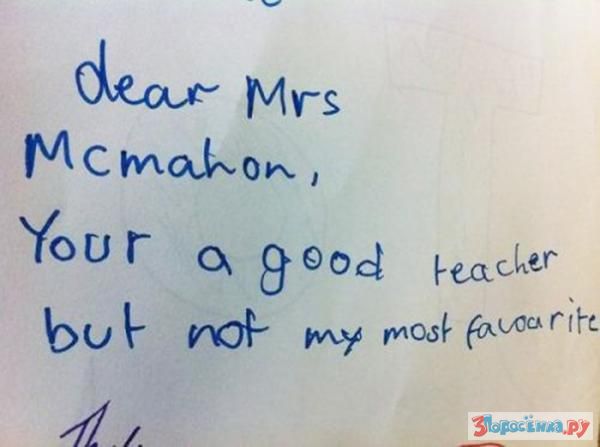 dear Mrs
Mcmahon,
Your a good teacher
but not my most favourite
3Поросёнка.ру